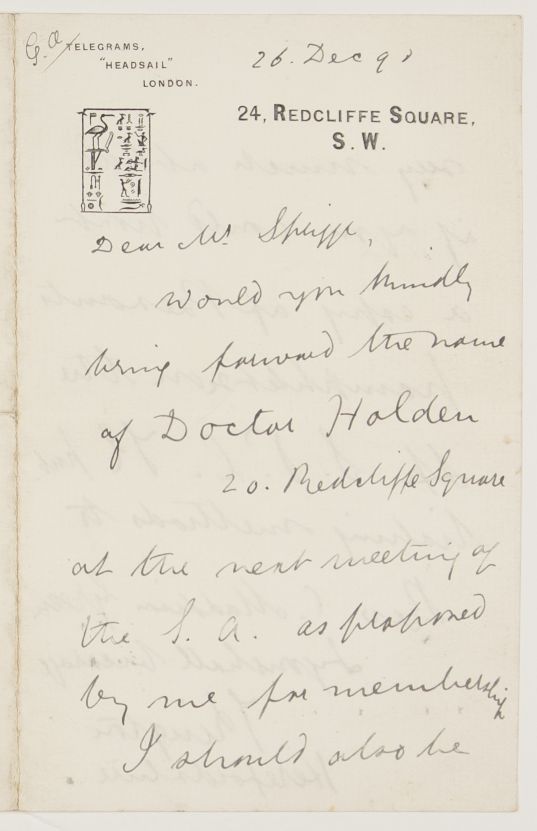 G.A/
TELEGRAMS,
"HEADSAIL"
LONDON.
26. Dec 98
24, REDCLIFFE SQUARE,
S.W.
Dear Mr
would you kindly
bring forward the name
of Doctor Holden
20. Redcliffe Square
at the next meeting of
the S. A. as proposed
by me for membership
I should also be